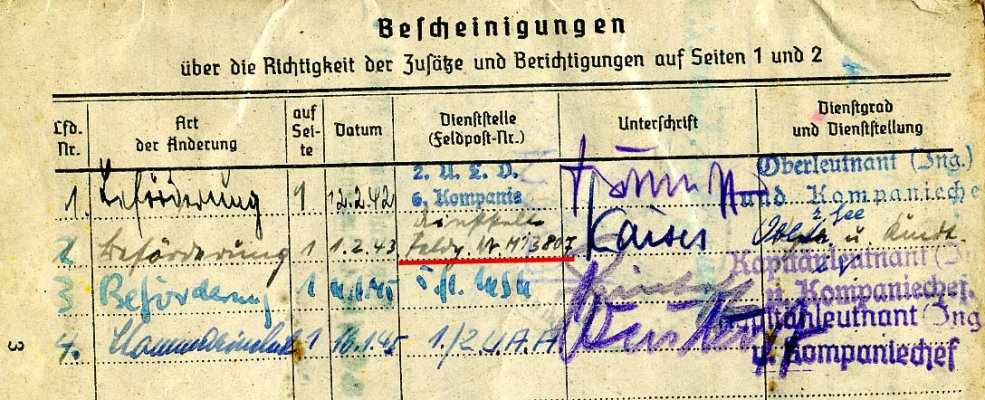 Bescheinigungen
über die Richtigkeit der Zusätze und Berichtigungen auf Seiten 1 und 2
Lfd. Nr.
Art der Änderung
auf Sei-te
Datum
Dienststelle (Feldpost-Nr.)
Unterschrift
Dienstgrad und Dienststellung
1. Beförderung 1 12.2.42 2. U. L. D. 6. Kompanie Oberleutnant (Ing.) und Kompanieche
2 Beförderung 1 1.2.43 Dienststelle Feldp. Nr. M 13807 Kaiser Oblt. z. See u. Kmdt.
3 Beförderung 1 Kapitänleutnant (I u. Kompaniechef.
4. 1 16.1.45 1./2 U.A.A. Kapitänleutnant (Ing u. Kompaniechef
3